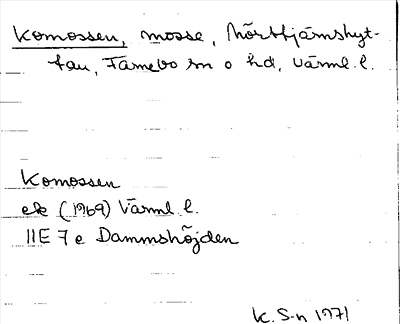 Komossen, mosse, Mörttjärnshyt-
tan, Färnebo sn o hd, Värml. l.
Komossen
ek (1969) Värml. l.
11E 7e Dammshöjden
K. S-n 1971